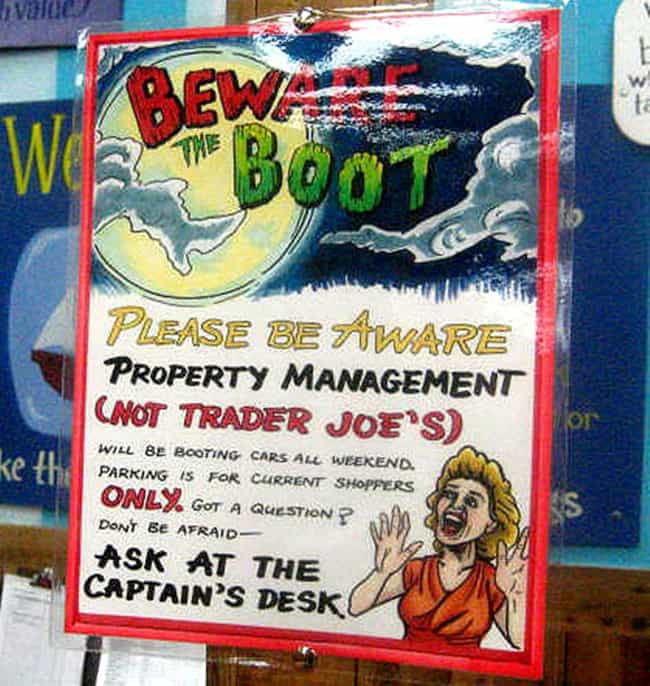 h value.
We
BEWARE
THE
BOOT
PLEASE BE AWARE
PROPERTY MANAGEMENT
(NOT TRADER JOE'S)
WILL BE BOOTING CARS ALL WEEKEND.
PARKING IS FOR CURRENT SHOPPERS
ONLY. GOT A QUESTION?
DON'T BE AFRAID—
ASK AT THE
CAPTAIN'S DESK
ke th
or